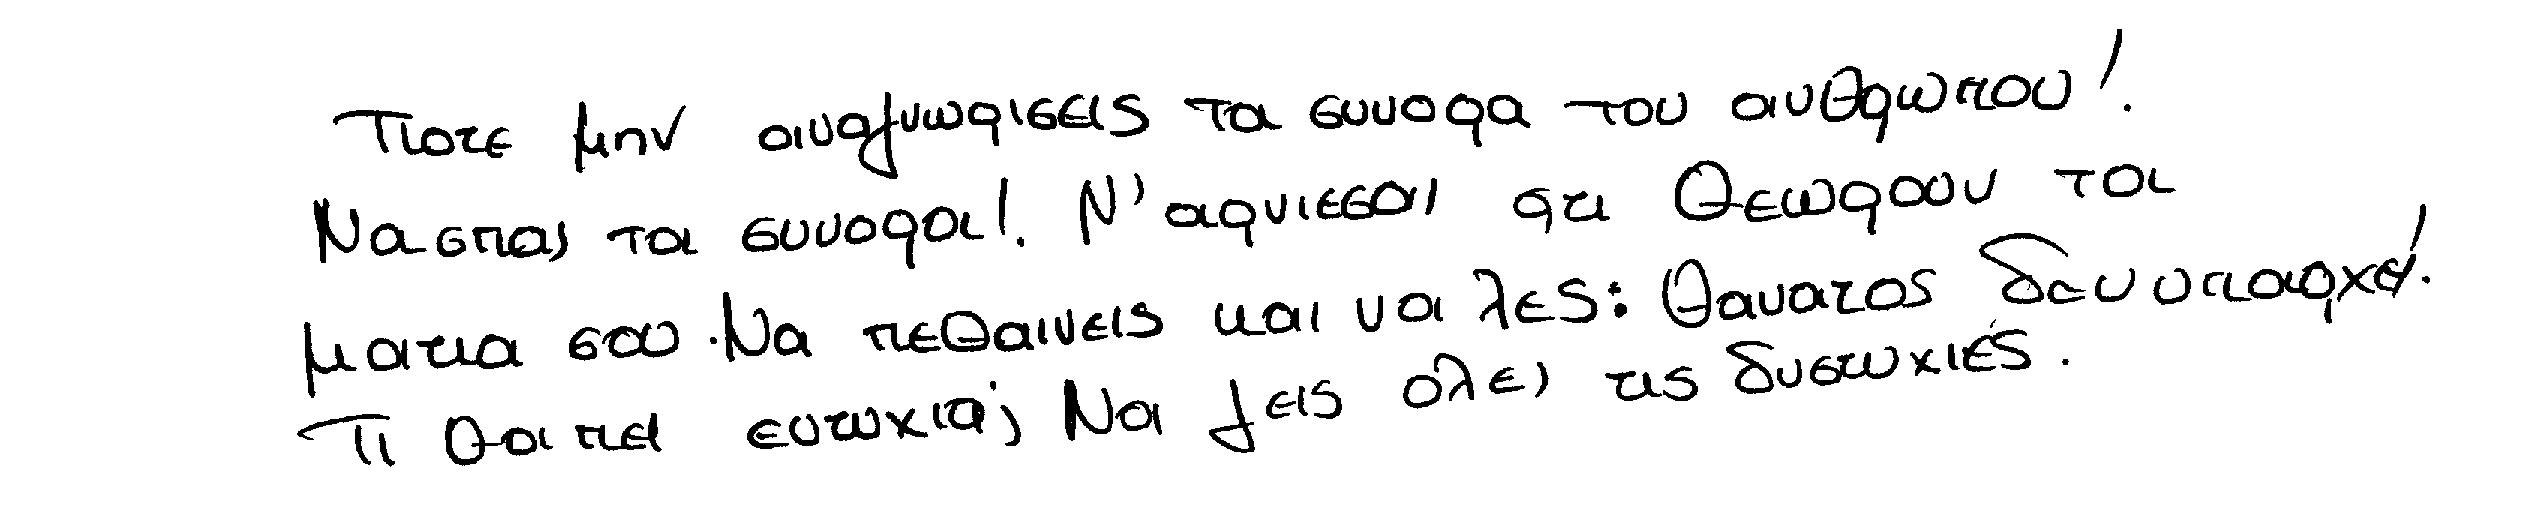 Ποτε μην αναγνωρισεις τα συνορα του ανθρωπου!
Να σπας τα συνορα! Ν' αρνιεσαι ότι θεωρουν τα
ματια σου. Να πεθαινεις και να λες: Θανατος δεν υπαρχει!
Τι θα πει ευτυχια; Να ζεις ολες τις δυστυχιές.